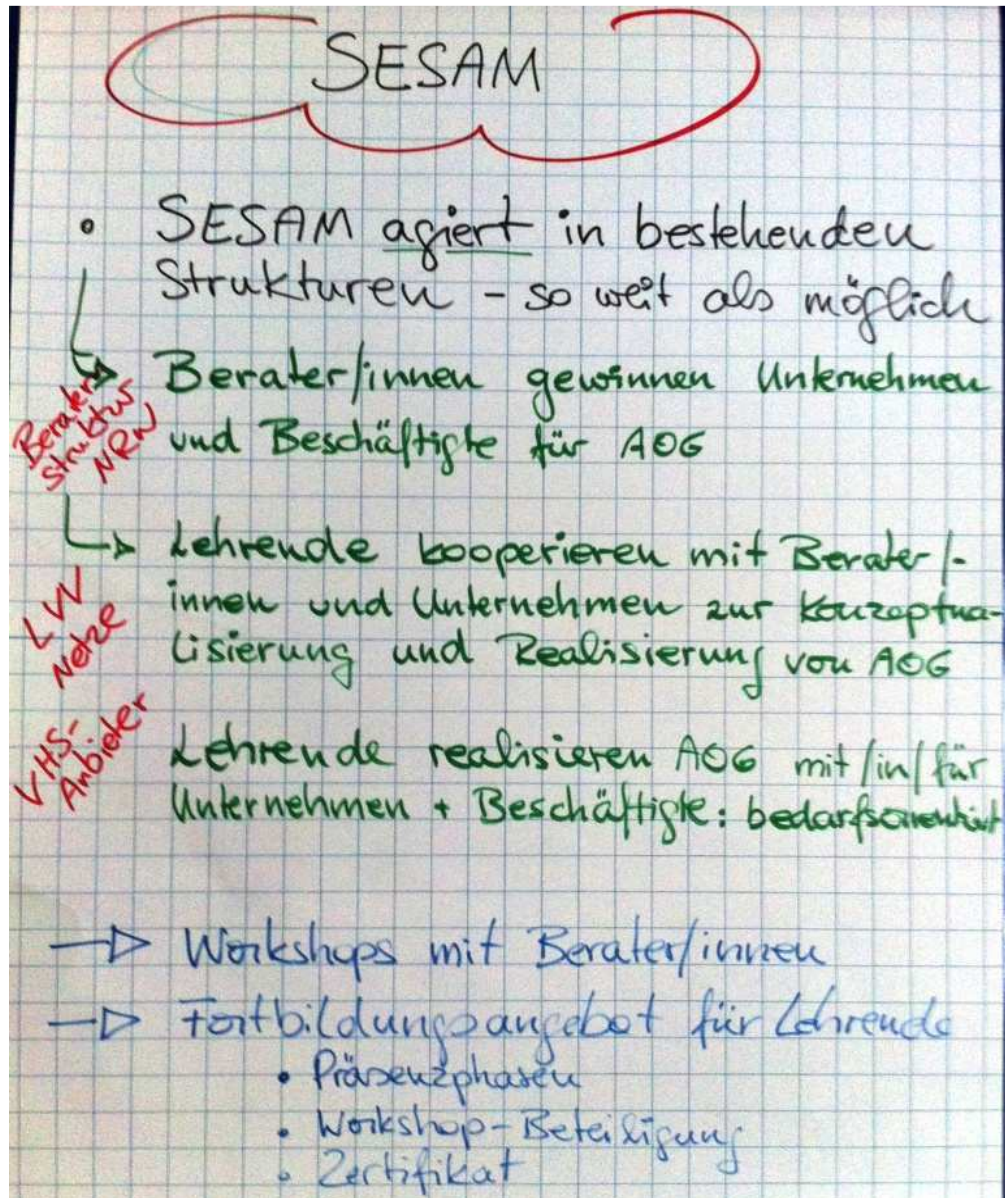 SESAM
• SESAM agiert in bestehenden
Strukturen - so weit als möglich
Berater/innen gewinnen Unternehmen
und Beschäftigte für AOG
Berater
struktur
NRW
Lehrende kooperieren mit Berater/-
innen und Unternehmen zur Konzeptua-
lisierung und Realisierung von AOG
LW
Netze
Lehrende realisieren AOG mit/in/für
Unternehmen + Beschäftigte: bedarfsorientiert
VHS-
Anbieter
Workshops mit Berater/innen
Fortbildungsangebot für Lehrende
• Präsenzphasen
• Workshop-Beteiligung
• Zertifikat